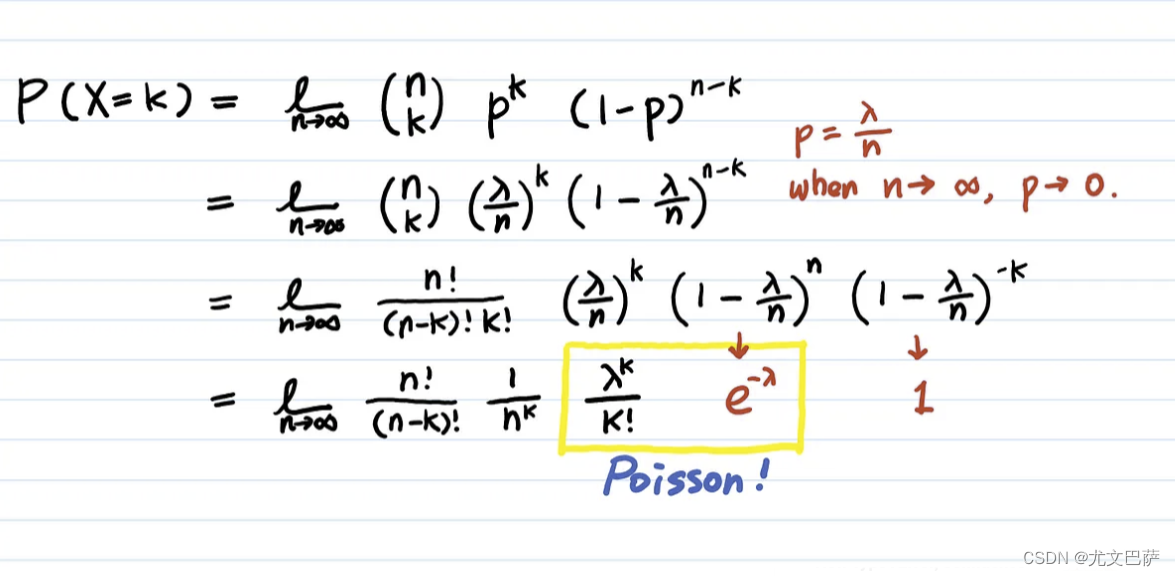 P(X=k) = lim n→∞ (n k) p^k (1-p)^{n-k}
p = λ/n
when n→ ∞, p→ 0.
= lim n→∞ (n k) (λ/n)^k (1 - λ/n)^{n-k}
= lim n→∞ n!/((n-k)! k!) (λ/n)^k (1 - λ/n)^n (1 - λ/n)^{-k}
↓ ↓
= lim n→∞ n!/(n-k)! 1/n^k λ^k/k! e^{-λ} 1
Poisson!
CSDN @尤文巴萨